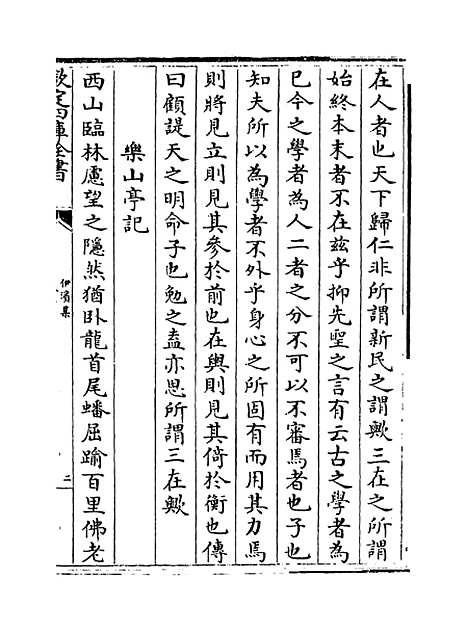 在人者也天下歸仁非所謂新民之謂歟三在之所謂
始終本末者不在兹乎抑先聖之言有云古之學者為
已今之學者為人二者之分不可以不審焉者也子也
知夫所以為學者不外乎身心之所固有而用其力焉
則將見立則見其參於前也在輿則見其倚於衡也傳
曰顧諟天之明命子也勉之盍亦思所謂三在歟
樂山亭記
西山臨林慮望之隱然猶卧龍首尾蟠屈踰百里佛老
欽定四庫全書
伊濱集
二